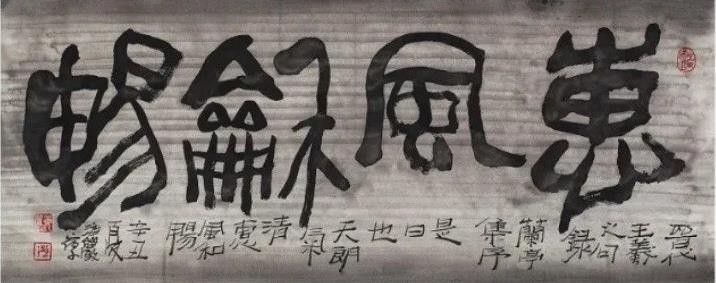 惠風龢暢
晉代
王羲
之句
錄
蘭亭
集序
是
日
也
天朗
氣
清
惠
風和
暢
辛丑